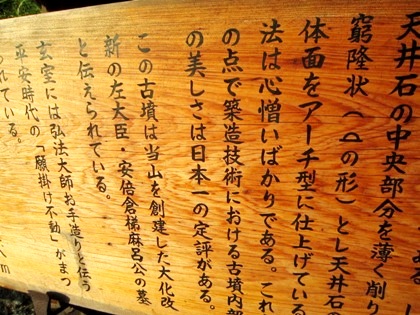 天井石の中央部分を薄く削り
窮隆状（⌓の形）とし天井石の
体面をアーチ型に仕上げている
法は心憎いばかりである。これ
の点で築造技術における古墳内部
の美しさは日本一の定評がある。
この古墳は当山を創建した大化改
新の左大臣・安倍倉梯麻呂公の墓
と伝えられている。
玄室には弘法大師お手造りと伝う
平安時代の「願掛け不動」がまつ
られている。